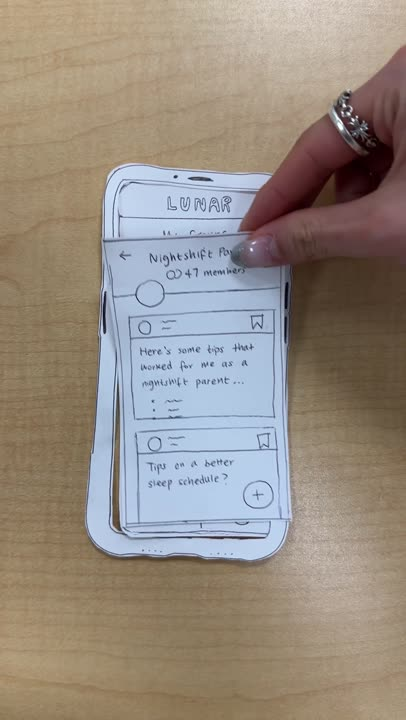 LUNAR
Nightshift
47 members
Here's some tips that
worked for me as a
nightshift parent...
Tips on a better
sleep schedule?